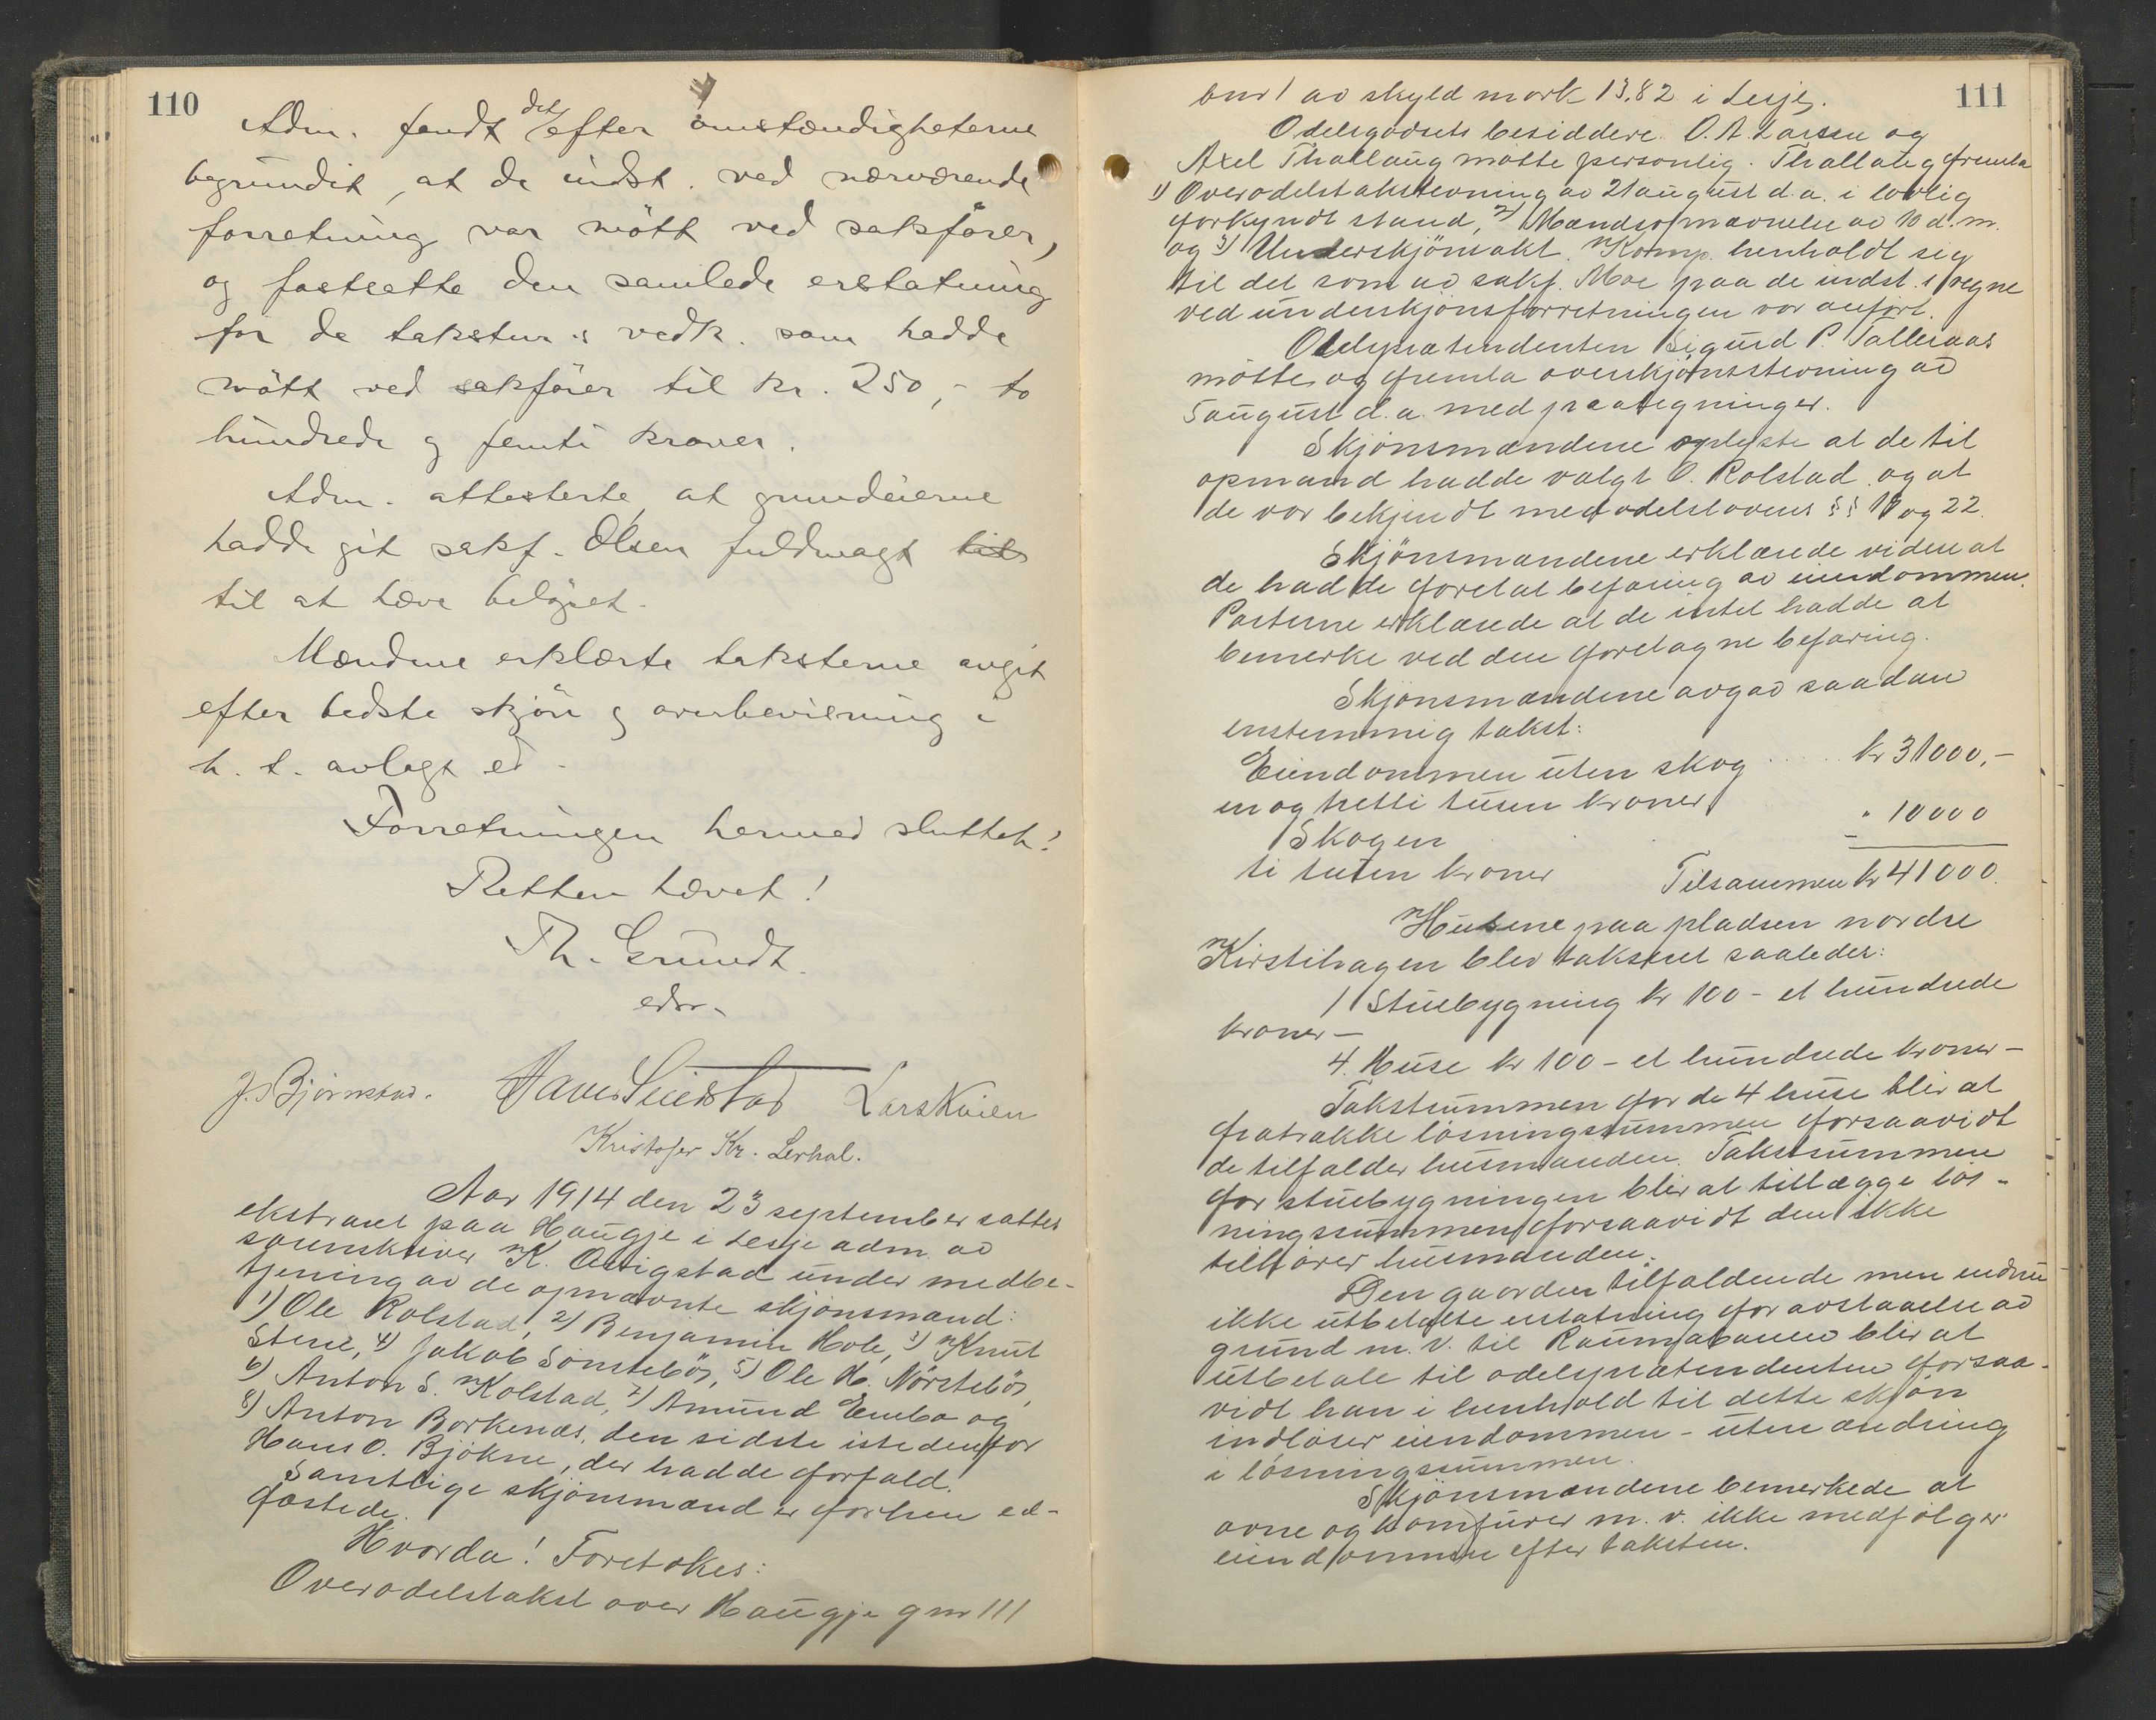 110
Adm. fandt det efter omstændigheterne
begrundet, at de indst. ved nærværende
forretning var mött ved sakförer,
og fastsette den samlede erstatning
for de takstnr.s vedk. som hadde
mött ved sakförer til kr. 250,- to
hundrede og femti kroner.
Adm. attesterte, at grundeierne
hadde git sakf. Olsen fuldmagt til
til at hæve belöpet.
Mændene erklærte taksterne avgit
efter bedste skjön og overbevisning i
h. t. avlagt ed.
Forretningen hermed sluttet!
Retten hævet!
Th. Grundt.
edsv.
J. Björnstad. Lars Kvien
Kristofer Kr. Lerhol.
Aar 1914 den 23 september sattes
ekstraret paa Haugje i Lesje adm. av
sorenskriver K. Avigstad under medbe-
tjening av de opnævnte skjönsmænd:
1) Ole Rolstad, 2) Benjamin Hole, 3) Knut
Stene, 4) Jakob Sönstebö, 5) Ole H. Nörstebö,
6) Anton S. Kolstad, 7) Amund Enebo og
8) Anton Borkenæs, den sidste istedenfor
Hans O. Bjökne, der hadde forfald.
Samtlige skjönsmænd er forhen ed-
fæstede.
Hvorda! Foretokes:
Overodelstakst over Haugje gnr 111
111
bnr 1 av skyld mark 13,82 i Lesje.
Odelsgodsets besiddere O. A. Larsen og
Axel Thallaug mötte personlig. Thallaug fremla
1) Overodelstakstevning av 21 august d.a. i lovlig
forkyndt stand, 2) Mændsopnævnelse av 10 d.m.
og 3) Underskjönsakt. Komp. henholdt sig
til det som av sakf. Moe paa de indst.s vegne
ved underskjönsforretningen var anfört.
Odelsprætendenten Sigurd P. Talleraas
mötte og fremla overskjönsstevning av
5 august d.a. med paategninger.
Skjönsmændene oplyste at de til
opmand hadde valgt O. Rolstad og at
de var bekjendt med odelslovens §§ 17 og 22.
Skjönsmændene erklærede videre at
de hadde foretat befaring av eiendommen.
Parterne erklærede at de intet hadde at
bemerke ved den foretagne befaring.
Skjönsmændene avgav saadan
enstemmig takst:
Eiendommen uten skog ..... kr 31000,-
en og tretti tusen kroner
Skogen " 10000
ti tusen kroner
Tilsammen kr 41000.
Husene paa pladsen nordre
Kirstihagen blev taksert saaledes:
1 Stuebygning kr 100 - et hundrede
kroner -
4. Huse kr 100 - et hundrede kroner -
Takstsummen for de 4 huse blir at
fratrække lösningssummen forsaavidt
de tilfalder husmanden. Takstsummen
for stuebygningen blir at tillægge lös-
ningssummen forsaavidt den ikke
tilhörer husmanden.
Den gaarden tilfaldende men endnu
ikke utbetalte erstatning for avstaaelse av
grund m.v. til Raumabanen blir at
utbetale til odelsprætendenten forsaa-
vidt han i henhold til dette skjön
indlöser eiendommen - uten ændring
i lösningssummen.
Skjönsmændene bemerkede at
ovne og komfurer m.v. ikke medfölger
eiendommen efter taksten.